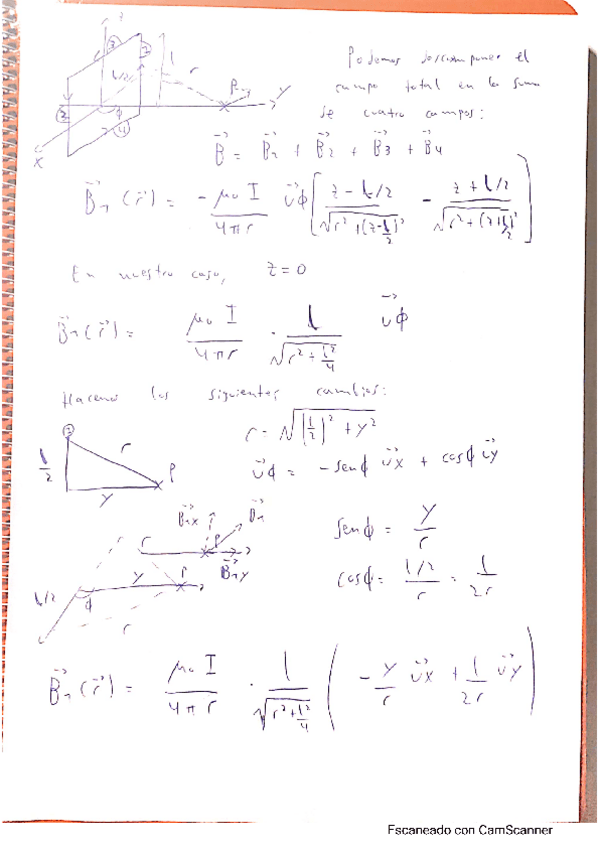 Podemos descomponer el
campo total en la suma
de cuatro campos:
B⃗ = B⃗1 + B⃗2 + B⃗3 + B⃗4
B⃗1 (r⃗) = - μ0 I / 4πr u⃗ϕ [ z - l/2 / √(r² + (z - l/2)²) - z + l/2 / √(r² + (z + l/2)²) ]
En nuestro caso, z = 0
B⃗1(r⃗) = μ0 I / 4πr · l / √(r² + l²/4) u⃗ϕ
Hacemos los siguientes cambios:
r = √((l/2)² + y²)
u⃗ϕ = -senϕ u⃗x + cosϕ u⃗y
senϕ = y / r
cosϕ = l/2 / r = l / 2r
B⃗1(r⃗) = μ0 I / 4πr · l / √(r² + l²/4) ( - y/r u⃗x + l/2r u⃗y )
Escaneado con CamScanner